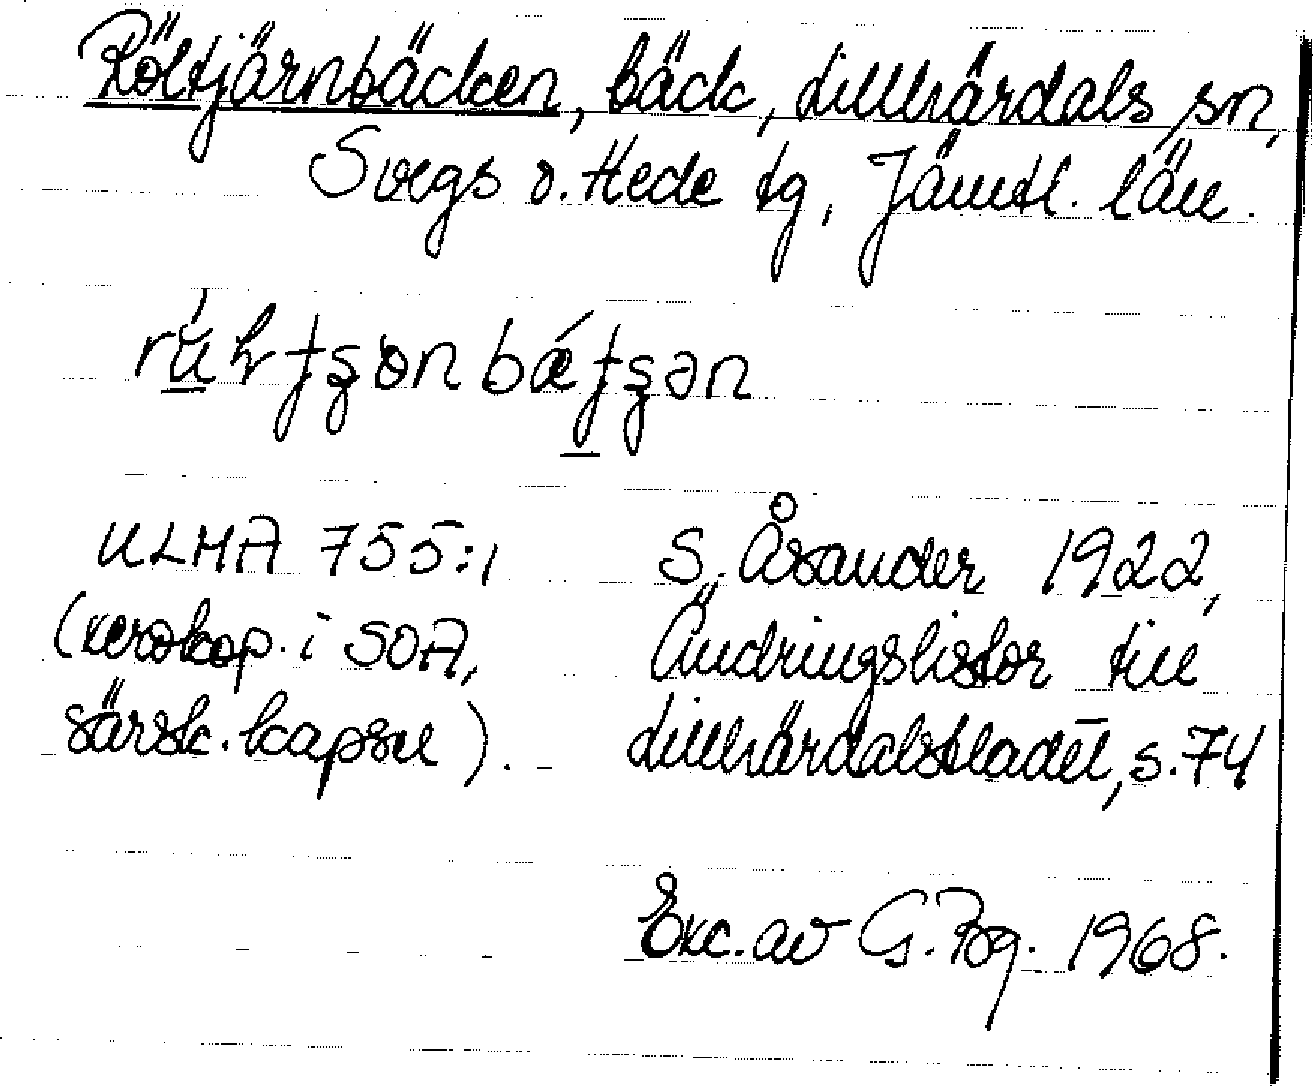 Röltjärnbäcken, bäck, Lillhärdals sn,
Svegs o. Hede tg, Jämtl. län.
ULMA 755:1 S. Åsander 1922,
(xerokop. i SOA, Ändringslistor till
särsk. kapsel). Lillhärdalsbladet, s. 74
Exc. av G. Bg. 1968.